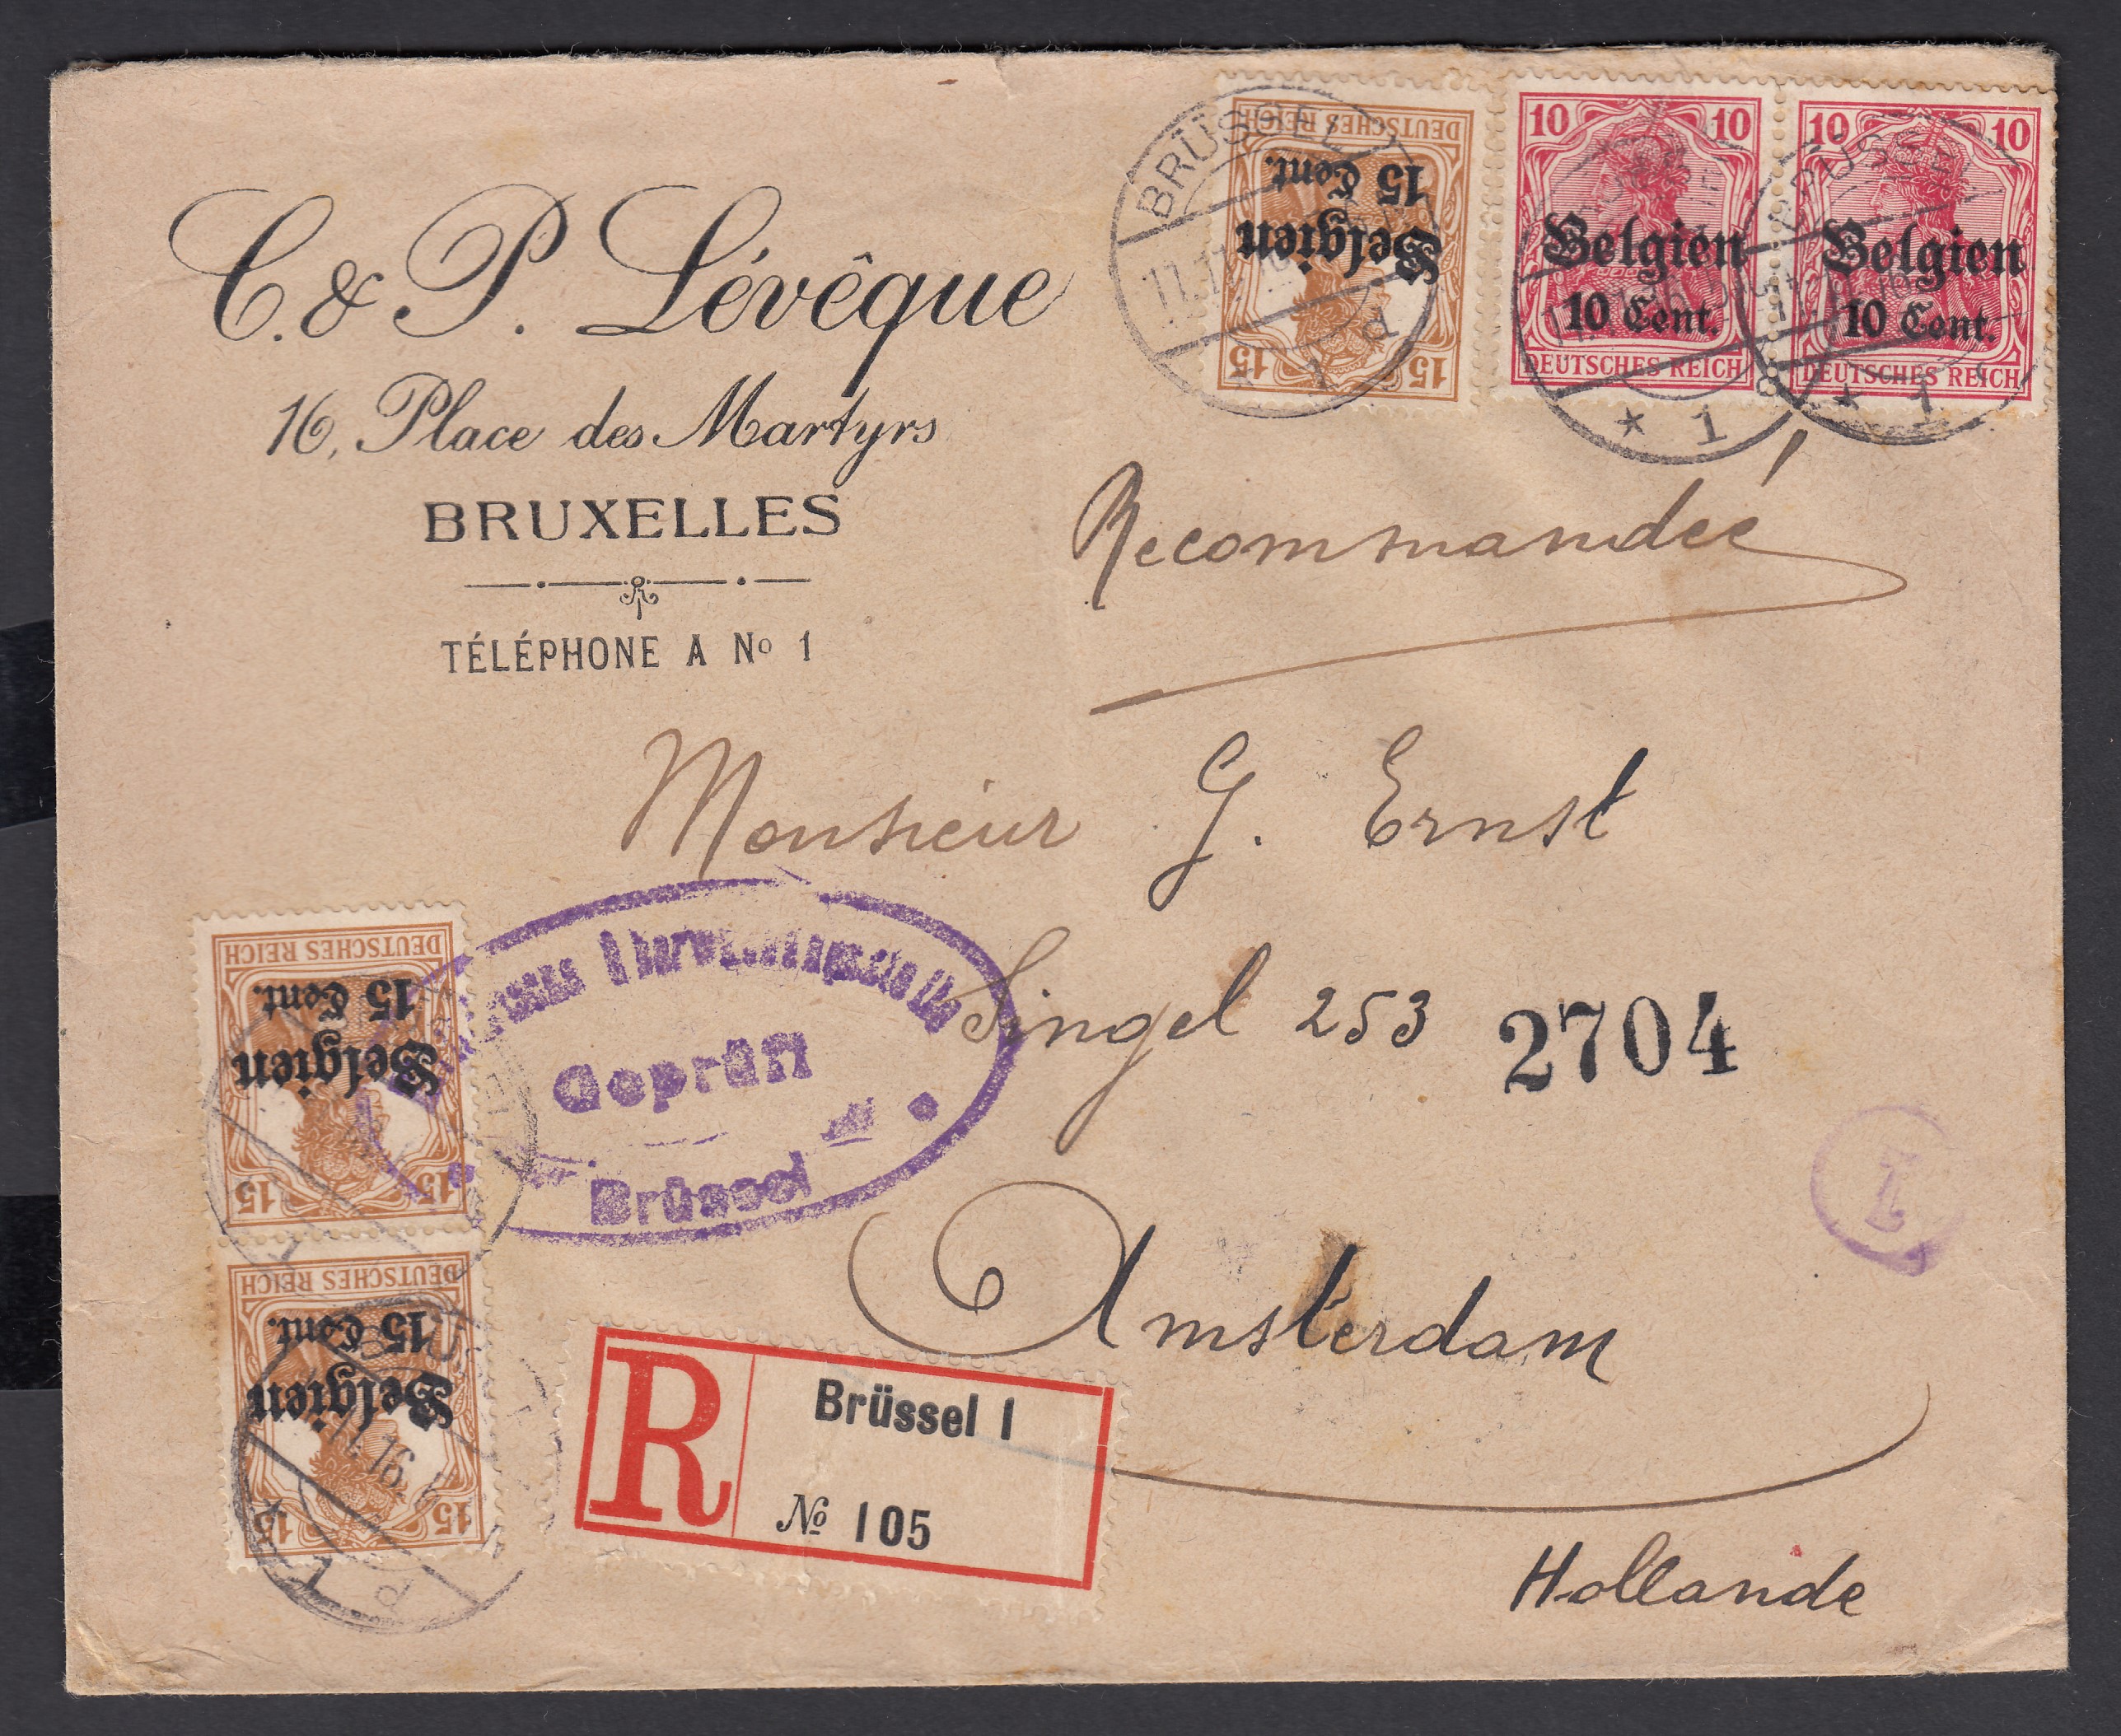 C. & P. Lévêque
16, Place des Martyrs
BRUXELLES
TÉLÉPHONE A No 1
DEUTSCHES REICH
15 Cent.
Belgien
15 15
BRÜSSEL
* 1 d
10 10
Belgien
10 Cent.
DEUTSCHES REICH
* 1
10 10
Belgien
10 Cent.
DEUTSCHES REICH
BRÜSSEL
* 1
Recommandée
Monsieur G. Ernst
Singel 253
2704
Amsterdam
Hollande
DEUTSCHES REICH
15 Cent.
Belgien
15 15
DEUTSCHES REICH
15 Cent.
Belgien
15 15
Geprüft
Brüssel
R
Brüssel 1
№ 105